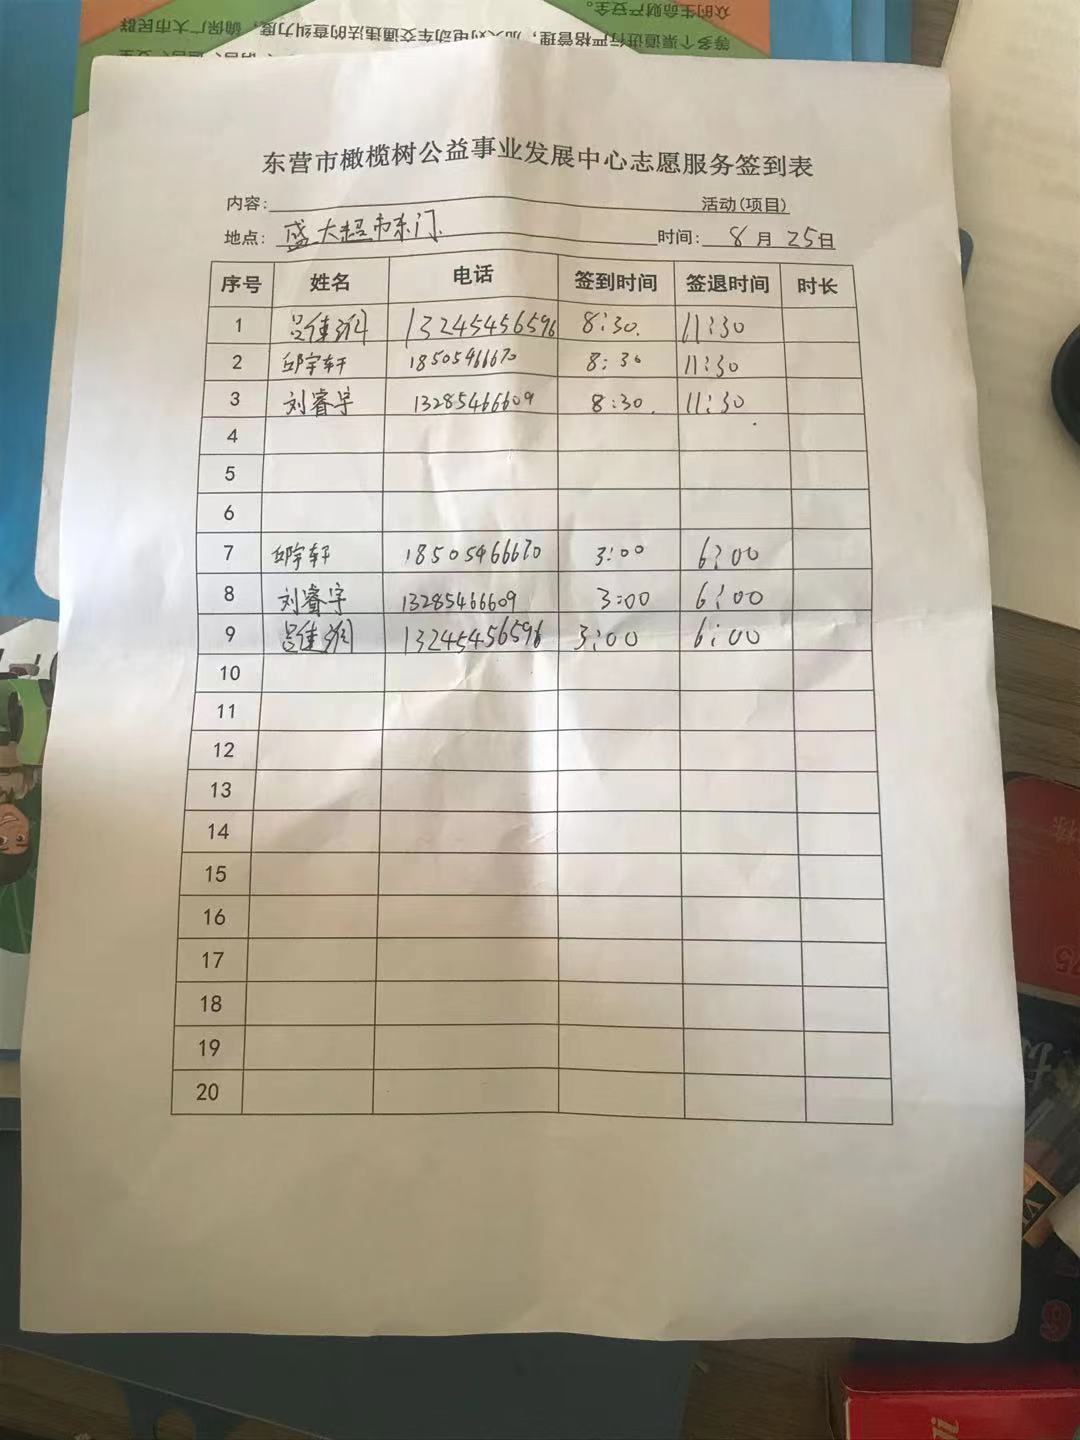 众的生命财产安全。
等多个渠道进行严格管理，加大对电动车交通违法的查纠力度，确保广大市民群
东营市橄榄树公益事业发展中心志愿服务签到表
内容: 活动(项目)
地点: 盛大超市东门 时间: 8月25日
序号 姓名 电话 签到时间 签退时间 时长
1 吕佳 13245456596 8:30. 11:30
2 邱宇轩 18505466670 8:30 11:30
3 刘睿宇 13285466609 8:30. 11:30
4
5
6
7 邱宇轩 18505466670 3:00 6:00
8 刘睿宇 13285466609 3:00 6:00
9 吕佳 13245456596 3:00 6:00
10
11
12
13
14
15
16
17
18
19
20